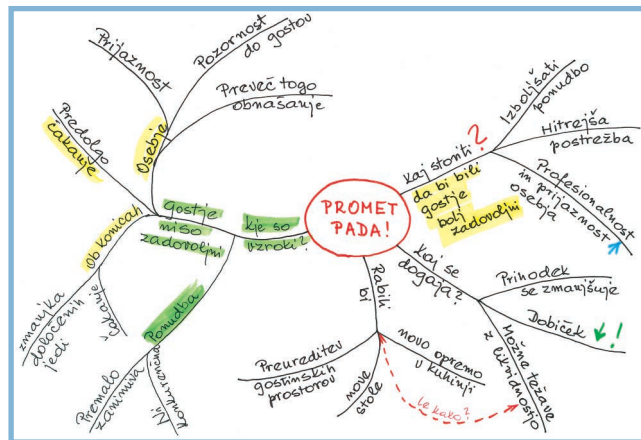 PROMET
PADA!
kje so
vzroki?
gostje
niso
zadovoljni
Osebje
Prijaznost
Pozornost
do gostov
Preveč togo
obnašanje
Predolgo
čakanje
Ob konicah
zmanjka
določenih
jedi
čakanje
Ponudba
Premalo
zanimiva
Ni
konkurenčna
Kaj storiti ?
da bi bili
gostje
bolj
zadovoljni
Izboljšati
ponudbo
Hitrejša
postrežba
Profesionalnost
in prijaznost
osebja
Kaj se
dogaja?
Prihodek
se zmanjšuje
Dobiček !
Možne težave
z likvidnostjo
Rabili
bi
novo opremo
v kuhinji
nove
stole
Preureditev
gostinskih
prostorov
le kako?